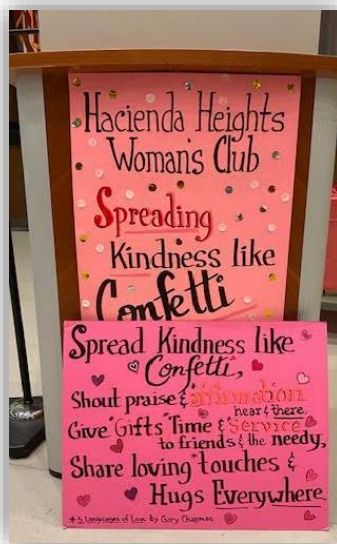 Hacienda Heights
Woman's Club
Spreading
Kindness like
Confetti
Spread Kindness like
Confetti,
Shout praise & affirmation
hear & there,
Give "Gifts" Time & Service
to friends & the needy,
Share loving touches &
Hugs Everywhere
* 5 Languages of Love by Gary Chapman